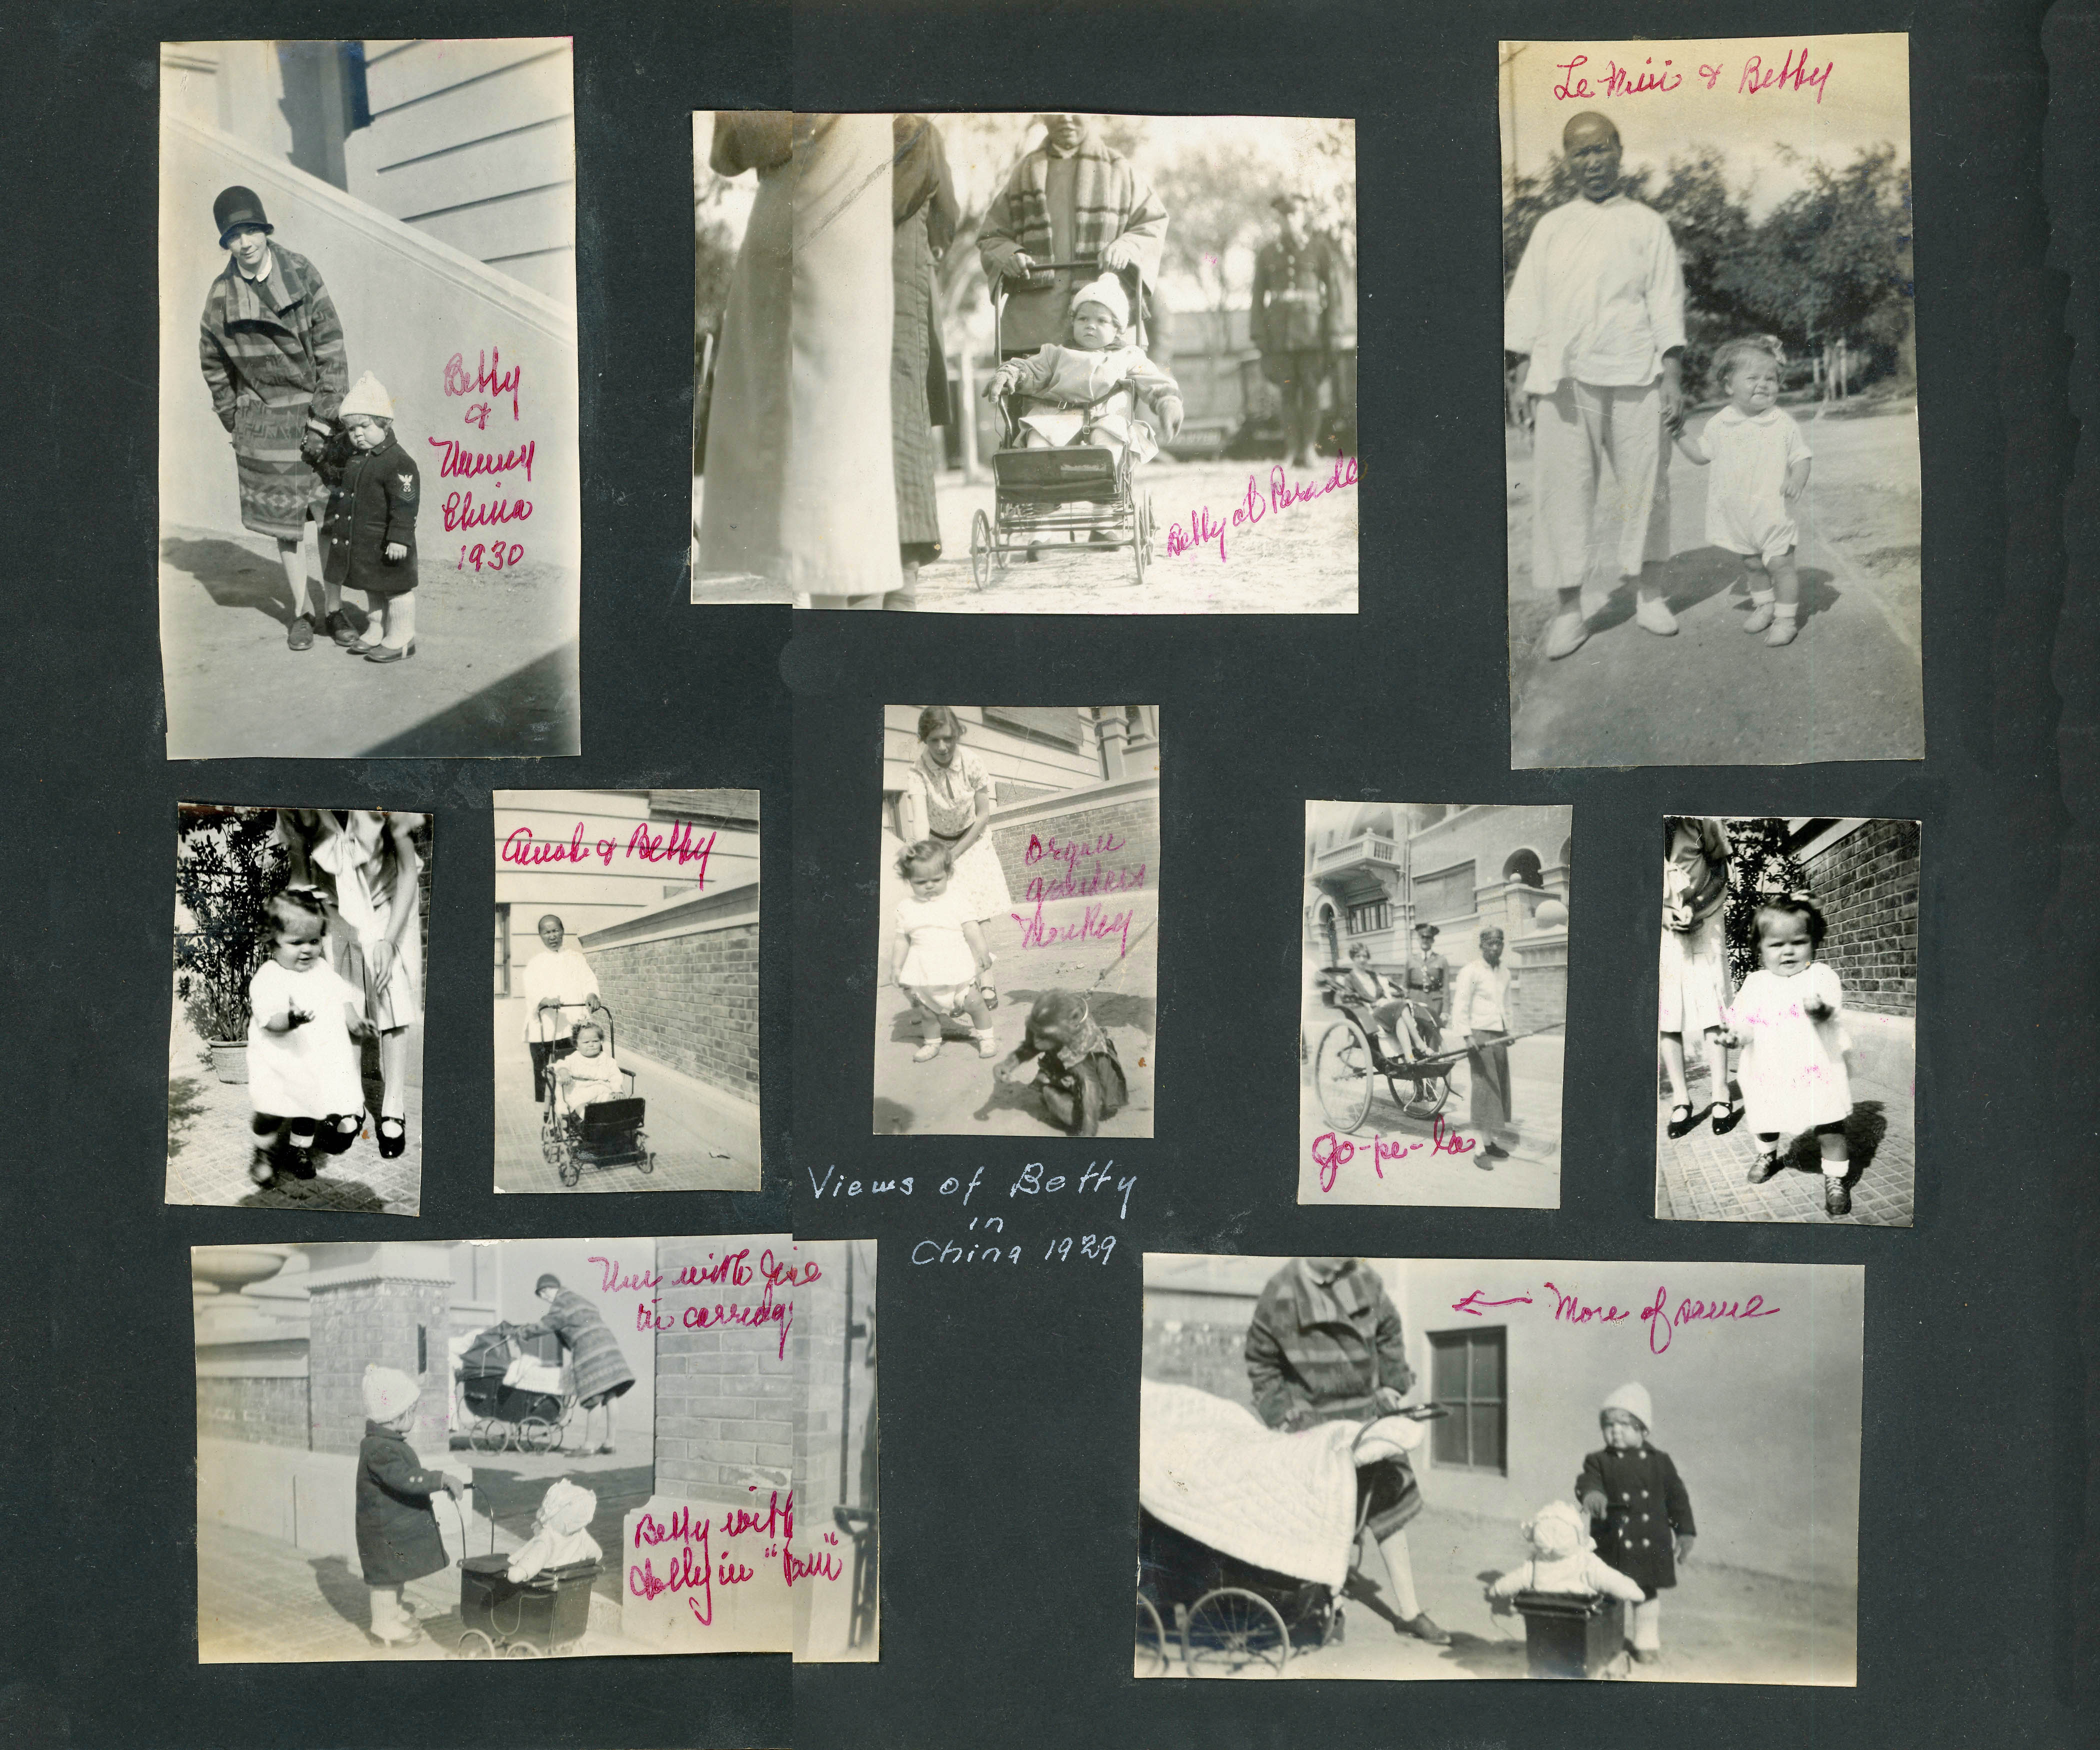 Betty
&
Mummy
China
1930
Betty at Parade
& Betty
Amah & Betty
Organ
grinders
Monkey
Jo-pe-la
Views of Betty
in
China 1929
Mum with
in carriag
Betty with
dolly in "Pram"
← More of same